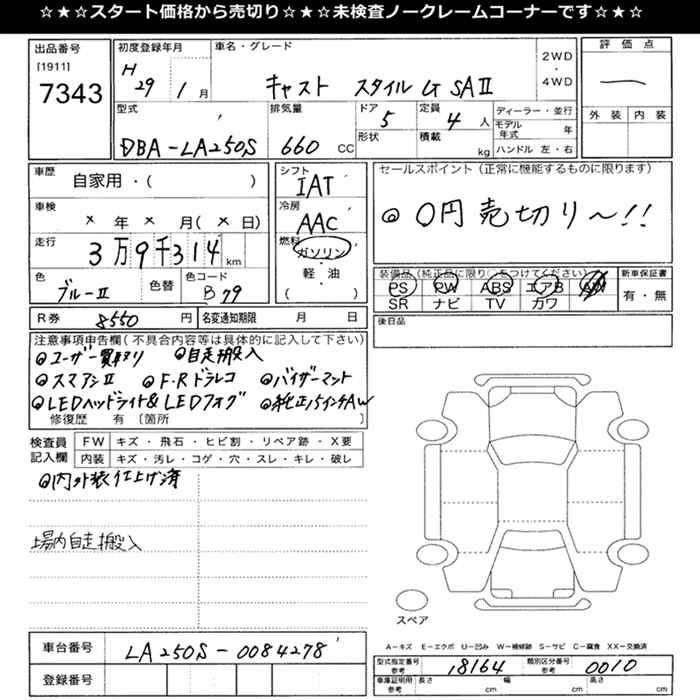 ☆★☆★スタート価格から売切り☆★☆★未検査ノークレームコーナーです☆★☆★
出品番号
[1911]
7343
初度登録年月
H
29 1 月
車名・グレード
キャスト スタイル G SAⅡ
2WD
・
4WD
評価点
—
外装 内装
型式
DBA-LA250S
排気量
660 CC
ドア
5
形状
定員
4 人
積載
kg
ディーラー・並行
モデル
年式 年
ハンドル 左・右
車歴
自家用・( )
車検
× 年 × 月( × 日)
走行
3万9千314 km
色
ブルーⅡ
色替
色コード
B79
シフト
IAT
冷房
AAC
燃料
ガソリン
・
軽・油
( )
セールスポイント(正常に機能するものに限ります)
◎ 0円売切り〜!!
装備品(純正品に限り○をつけてください)
PS PW ABS エアB AW
SR ナビ TV カワ
新車保証書
有・無
R券 8550 円
名変通知期限 月 日
後日品
注意事項申告欄(不具合内容等は具体的に記入して下さい)
◎ユーザー買取り ◎自走搬入
◎スマアシⅡ ◎F・Rドラレコ ◎バイザーマット
◎LEDヘッドライト&LEDフォグ ◎純正15インチAW
修復歴 有 〔箇所 〕
検査員
記入欄
FW キズ・飛石・ヒビ割・リペア跡・X要
内装 キズ・汚レ・コゲ・穴・スレ・キレ・破レ
◎内外装仕上げ済
場内自走搬入
スペア
車台番号
LA250S-0084278
登録番号
A-キズ E-エクボ U-凹み W-補修跡 S-サビ C-腐食 XX-交換済
型式指定番号
参考
18164
類別区分番号
参考
0010
車庫証明用
参考
長さ cm
幅 cm
高さ cm